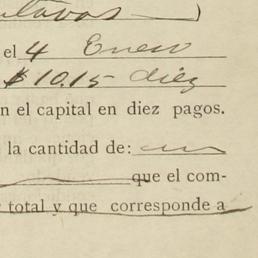 ntavos )
el 4 Enero
$10.15 diez
n el capital en diez pagos.
la cantidad de: un
que el com-
total y que corresponde a